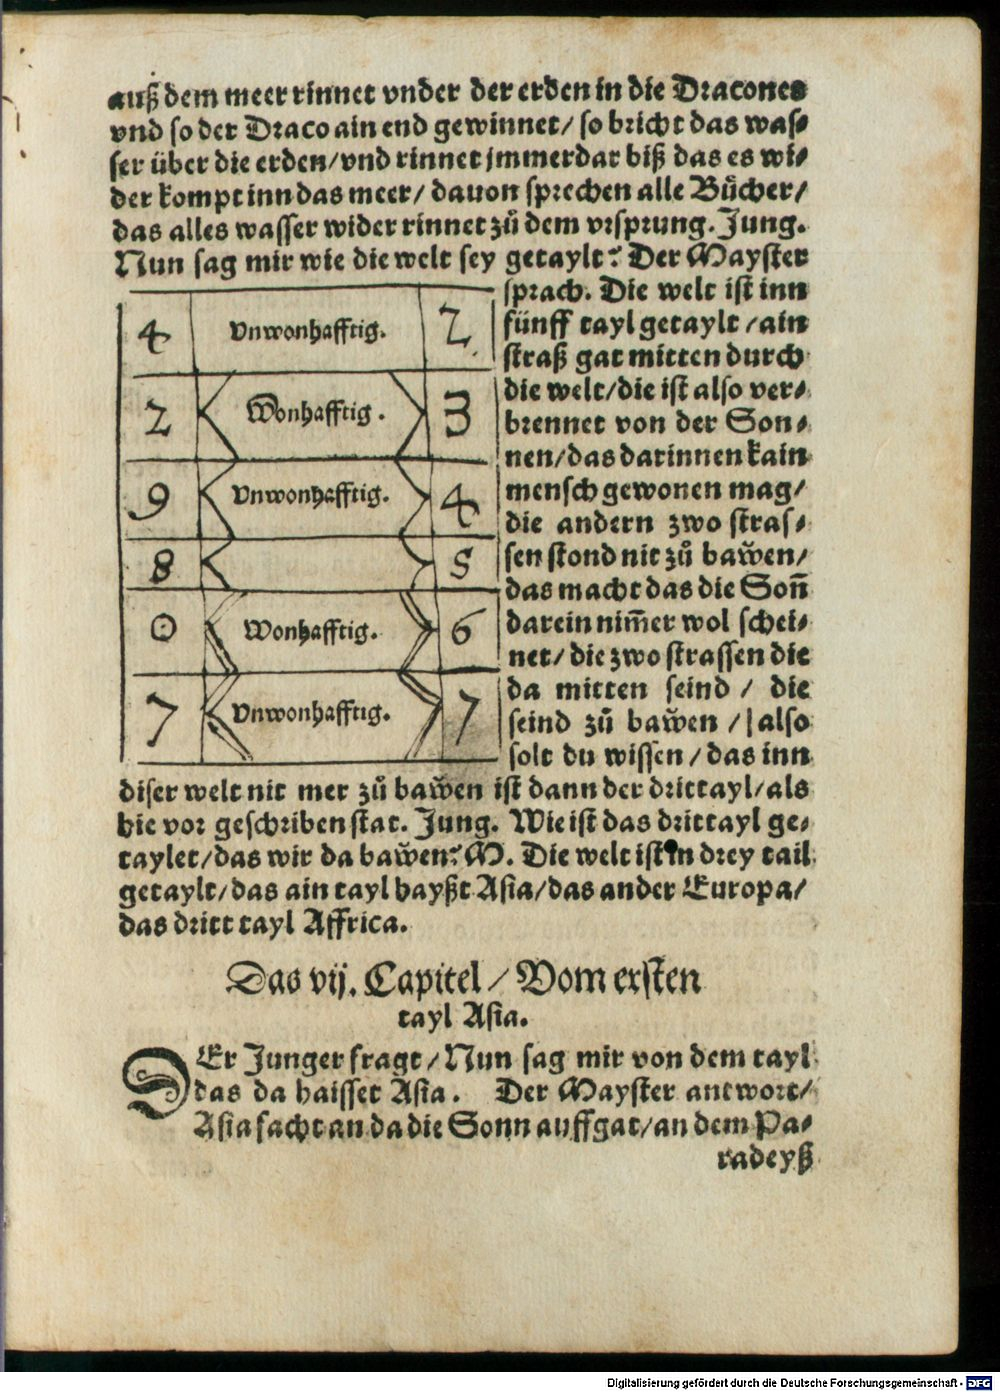 auß dem meer rinnet vnder der erden in die Dracones
vnd so der Draco ain end gewinnet/ so bricht das was⸗
ser über die erden/vnd rinnet jmmerdar biß das es wi⸗
der kompt inn das meer/ dauon sprechen alle Bücher/
das alles wasser wider rinnet zů dem vrsprung. Jung.
Nun sag mir wie die welt sey getaylt? Der Mayster
sprach. Die welt ist inn
fünff tayl getaylt /ain
straß gat mitten durch
die welt/die ist also ver⸗
brennet von der Son⸗
nen/das darinnen kain
mensch gewonen mag/
die andern zwo stras⸗
sen stond nit zů bawen/
das macht das die Soñ
darein nim̃er wol schei⸗
net/ die zwo strassen die
da mitten seind / die
seind zů bawen /also
solt du wissen / das inn
4 Vnwonhafftig. 2.
2 Wonhafftig. 3
9 Vnwonhafftig. 4
8 5
0 Wonhafftig. 6
7 Vnwonhafftig. 7
diser welt nit mer zů bawen ist dann der drittayl/als
hie vor geschriben stat. Jung. Wie ist das drittayl ge⸗
taylet/das wir da bawen? M. Die welt ist in drey tail
getaylt/das ain tayl hayßt Asia/das ander Europa/
das dritt tayl Affrica.
Das vij. Capitel / Vom ersten
tayl Asia.
DEr Junger fragt /Nun sag mir von dem tayl
das da haisset Asia. Der Mayster antwort/
Asia facht an da die Sonn auffgat/an dem Pa⸗
radeyß
Digitalisierung gefördert durch die Deutsche Forschungsgemeinschaft - DFG